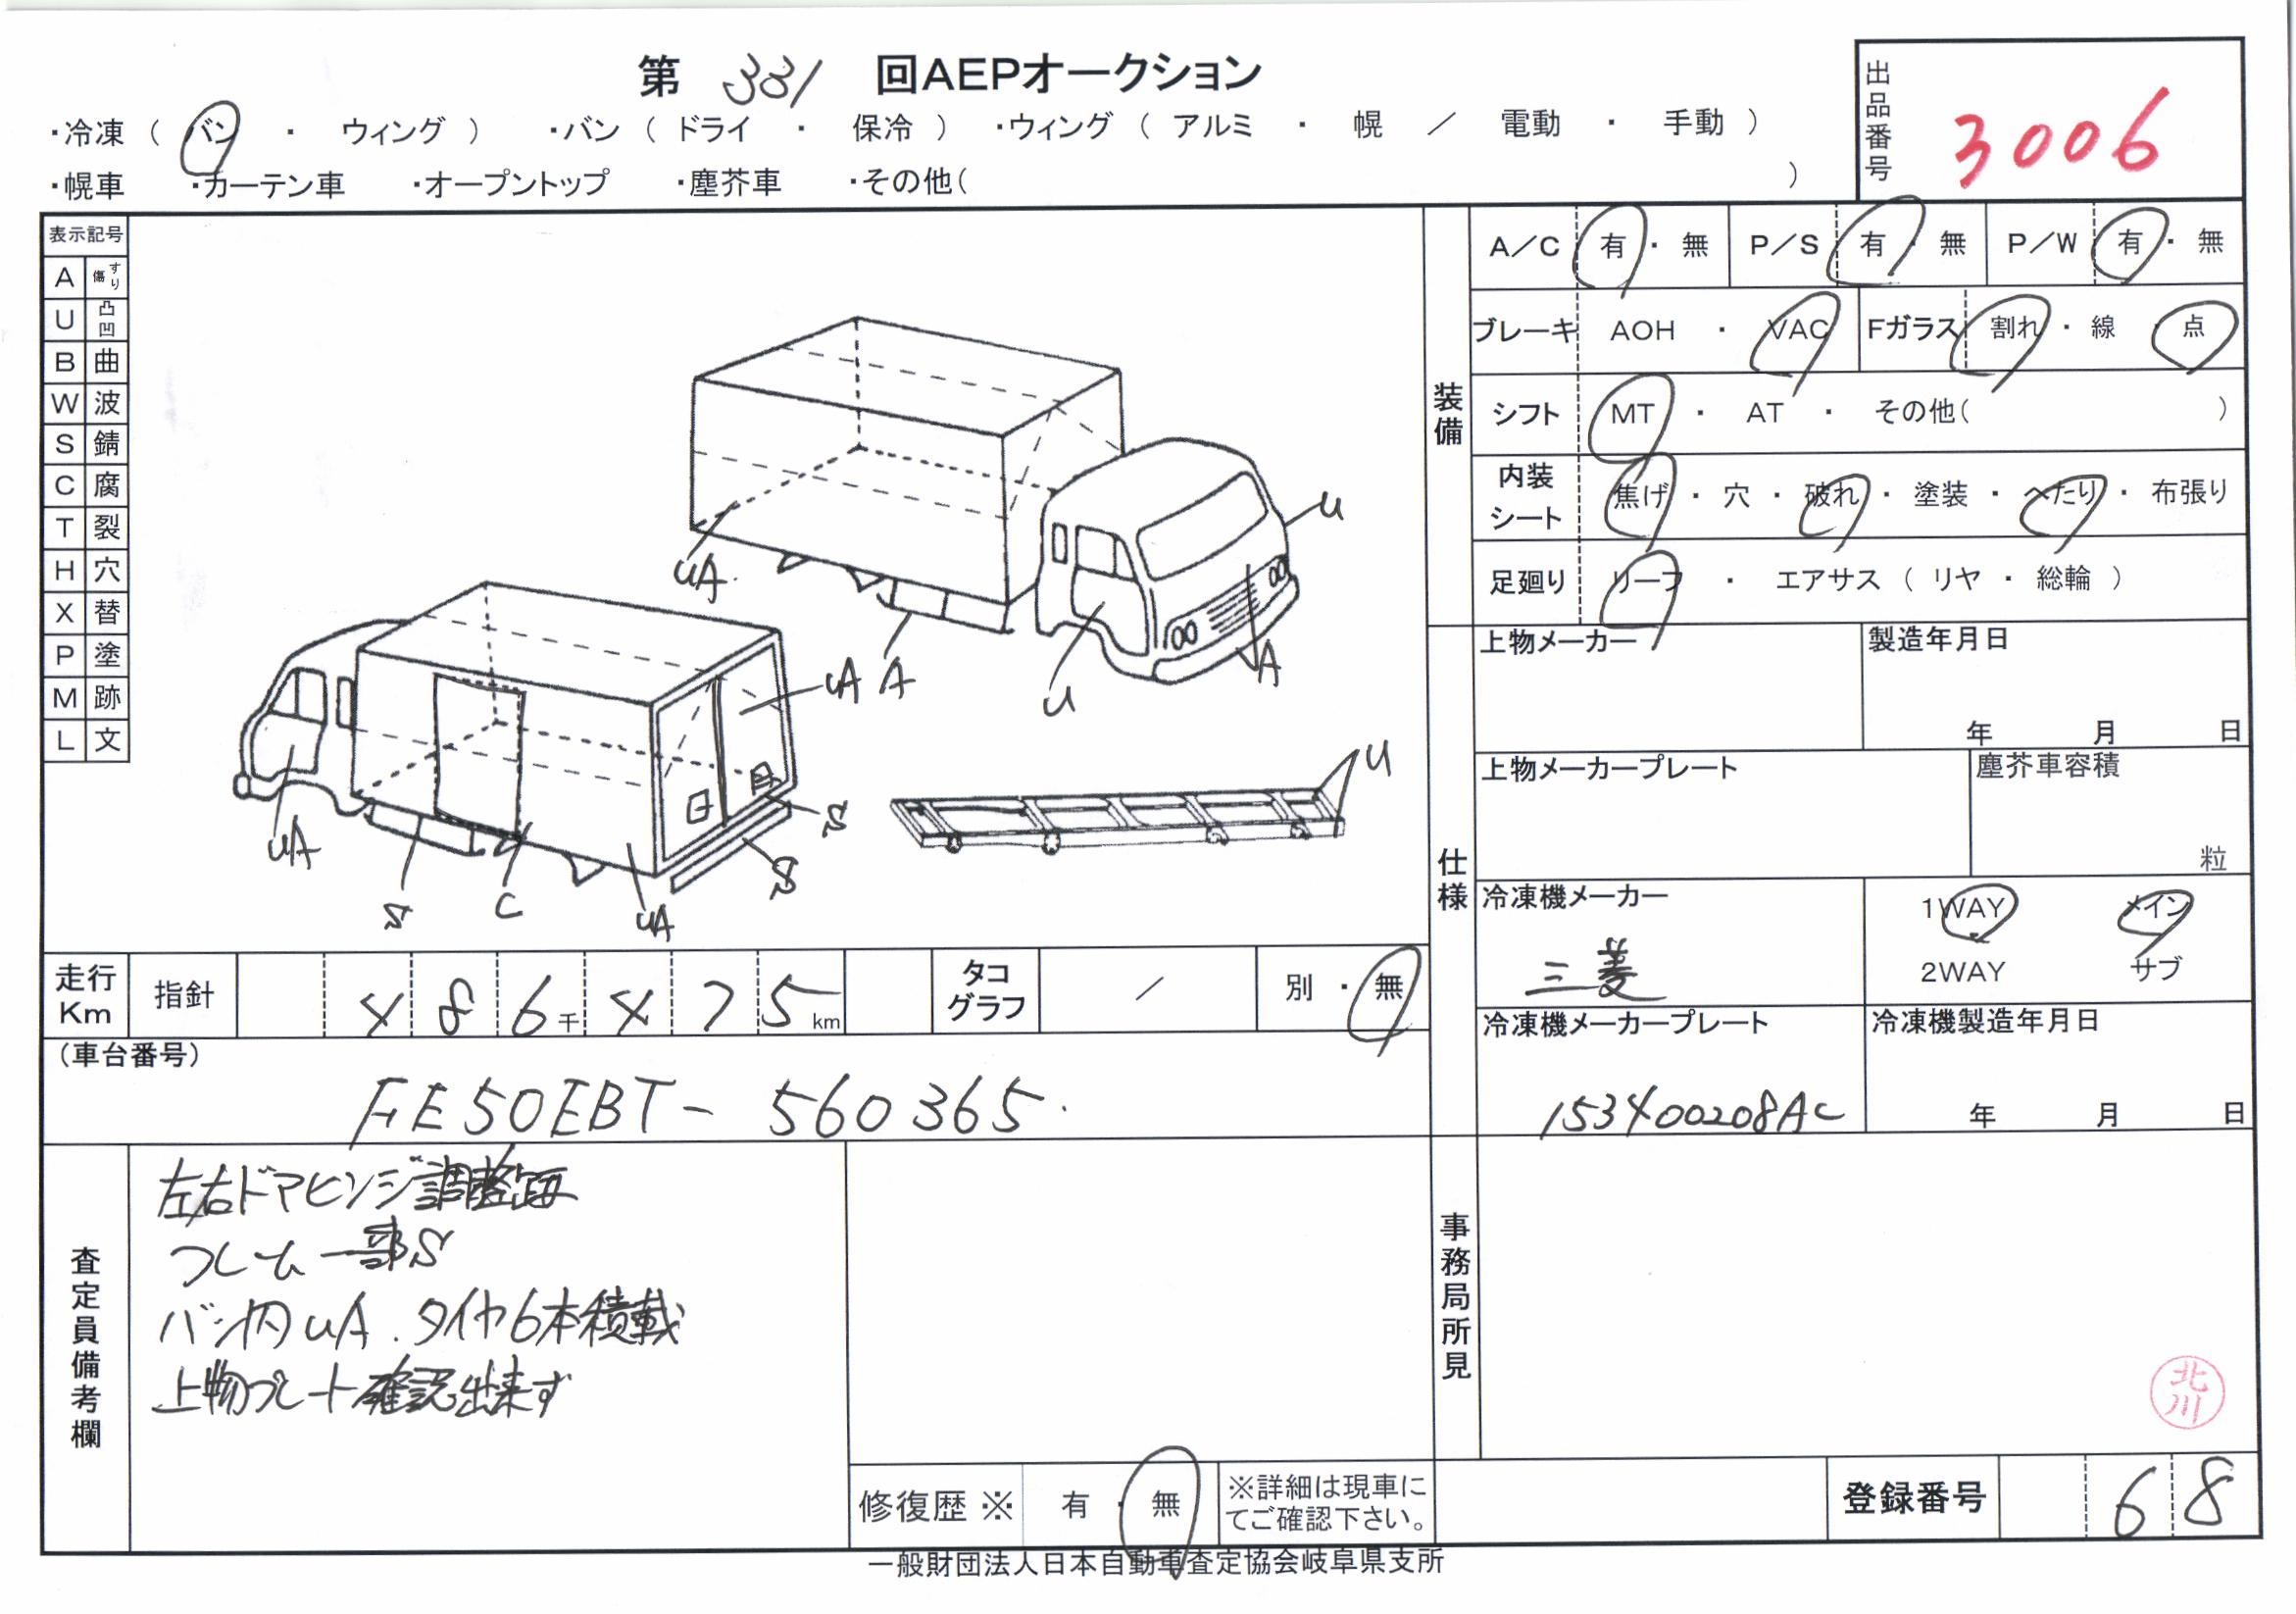 第 331 回AEPオークション
・冷凍 ( バン ・ ウィング ) ・バン ( ドライ ・ 保冷 ) ・ウィング ( アルミ ・ 幌 ／ 電動 ・ 手動 )
・幌車 ・カーテン車 ・オープントップ ・塵芥車 ・その他( )
出品番号 3006
表示記号
A すり傷
U 凸凹
B 曲
W 波
S 錆
C 腐
T 裂
H 穴
X 替
P 塗
M 跡
L 文
U
UA
A
U
A
UA
UA
S
S
UA
S
C
UA
U
装備
A／C 有 ・ 無 P／S 有 ・ 無 P／W 有 ・ 無
ブレーキ AOH ・ VAC Fガラス 割れ ・ 線 ・ 点
シフト MT ・ AT ・ その他( )
内装シート 焦げ ・ 穴 ・ 破れ ・ 塗装 ・ へたり ・ 布張り
足廻り リーフ ・ エアサス ( リヤ ・ 総輪 )
仕様
上物メーカー 製造年月日
年 月 日
上物メーカープレート 塵芥車容積
粒
冷凍機メーカー 1WAY メイン
三菱 2WAY サブ
冷凍機メーカープレート 冷凍機製造年月日
153400208AC 年 月 日
走行Km 指針 486千475km タコグラフ ／ 別 ・ 無
(車台番号)
FE50EBT- 560365.
査定員備考欄
左右ドアヒンジ調整要
フレーム一部S
バン内UA. タイヤ6本積載
上物プレート確認出来ず
事務局所見
北川
修復歴 ※ 有 ・ 無 ※詳細は現車にてご確認下さい。
登録番号 68
一般財団法人日本自動車査定協会岐阜県支所